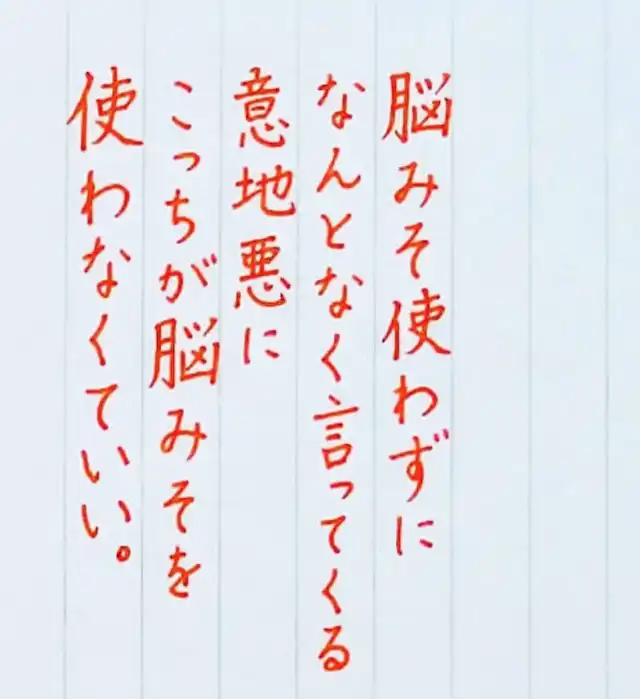 脳みそ使わずに
なんとなく言ってくる
意地悪に
こっちが脳みそを
使わなくていい。